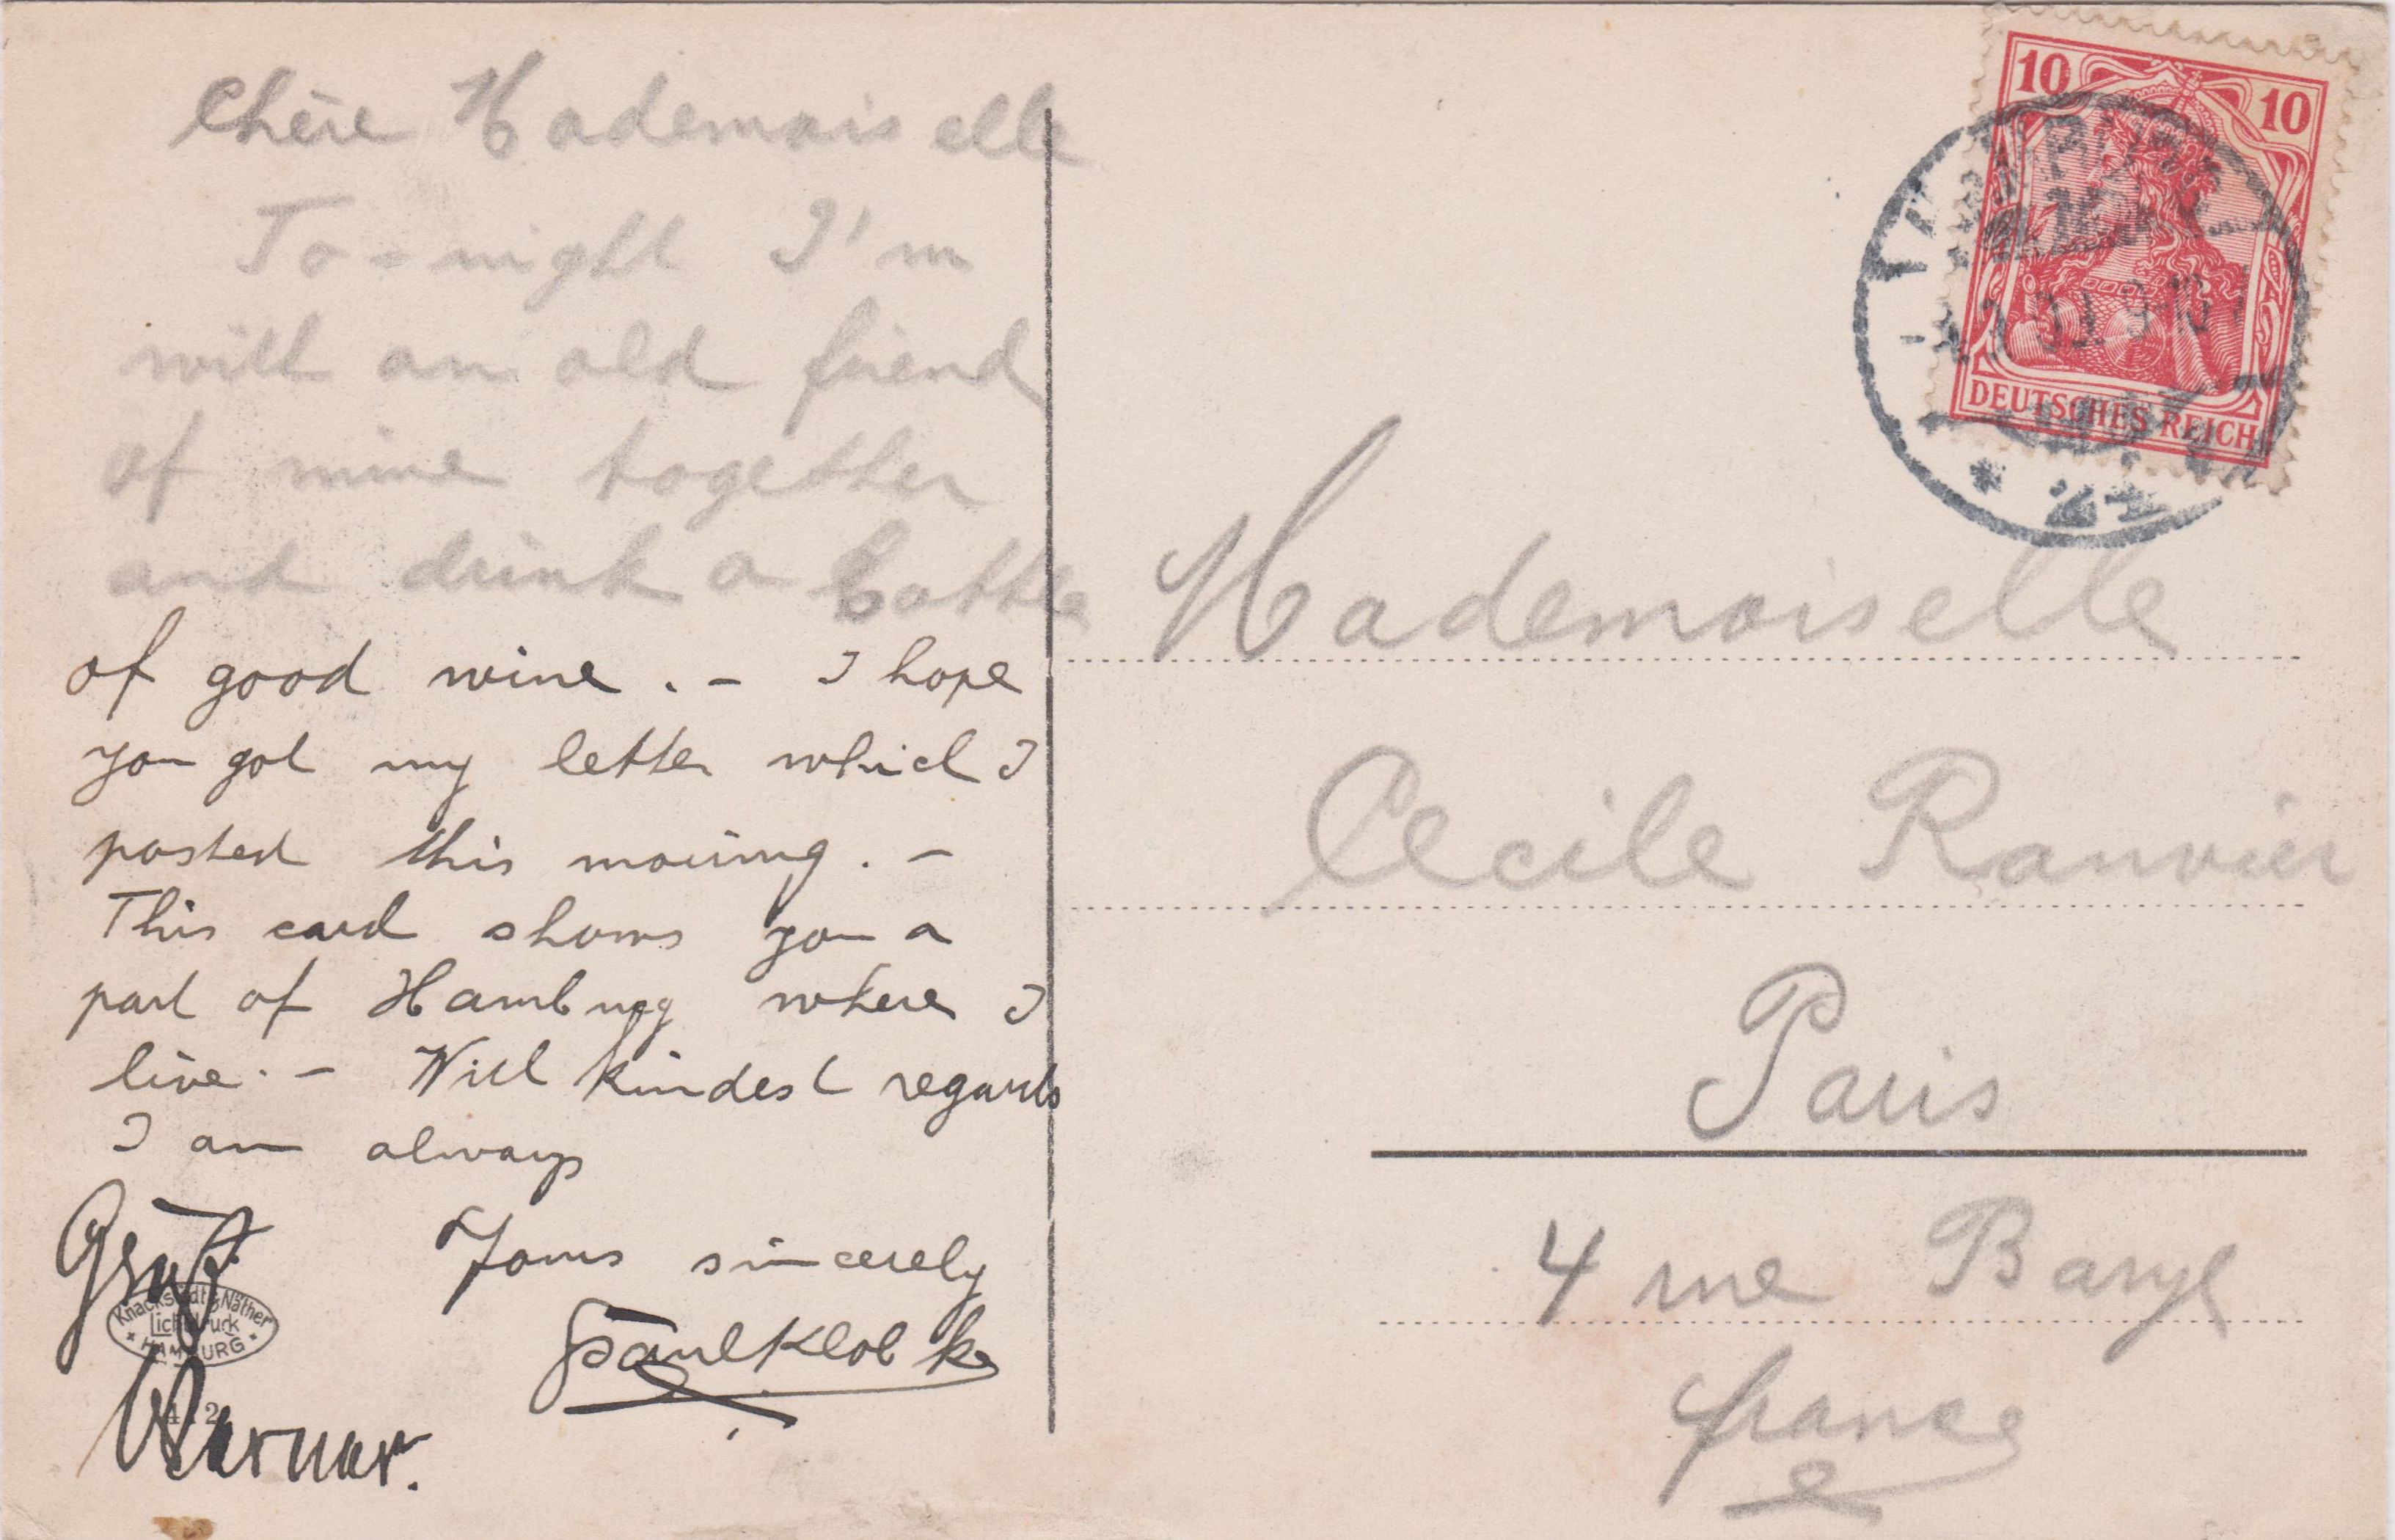 Chère Mademoiselle
To-night I'm
with an old friend
of mine together
and drink a bottle
of good wine. - I hope
you got my letter which I
posted this morning. -
This card shows you a
part of Hamburg where I
live. - With kindest regards
I am always
Yours sincerely
Paul
Gruß
Werner.
Knackstedt & Näther
Lichtdruck
HAMBURG
Mademoiselle
Cecile Ranvier
Paris
4 rue Barye
france
10 10
DEUTSCHES REICH
HAMBURG
* 24